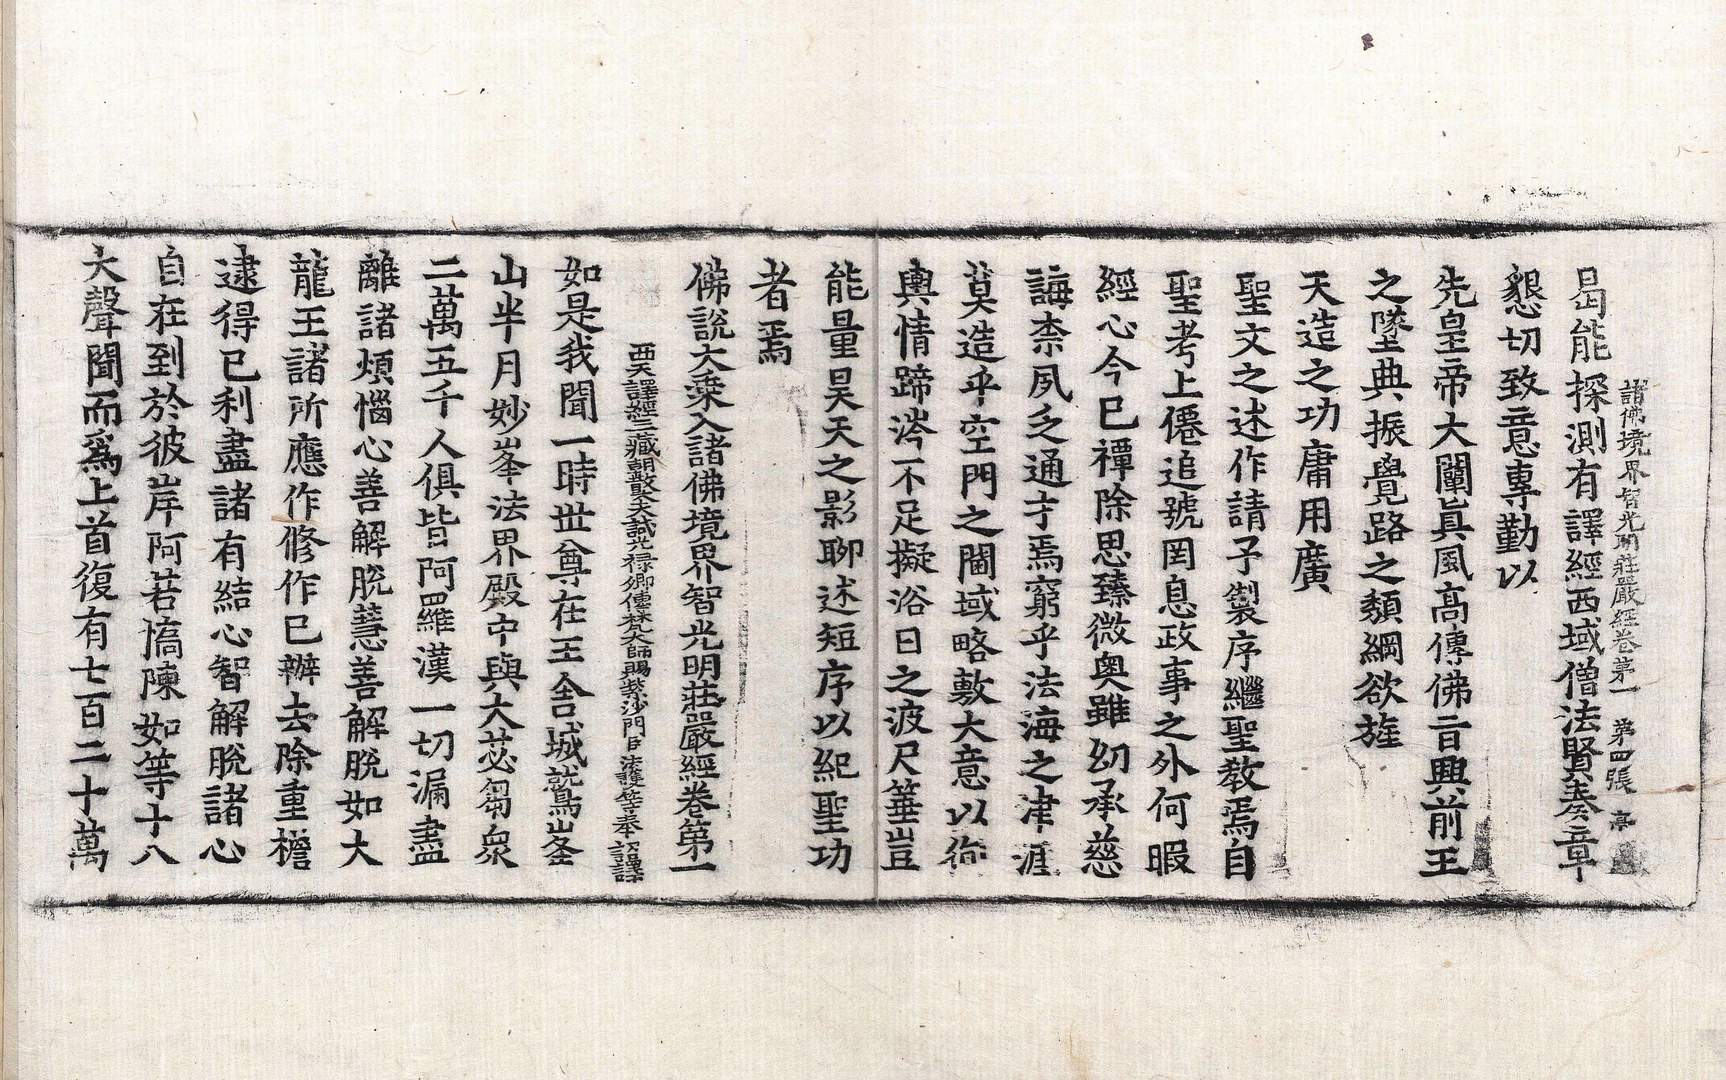 諸佛境界智光明莊嚴經卷第一 第四張 亭
曷能探測有譯經西域僧法賢奏章
懇切致意專勤以
先皇帝大闡眞風高傳佛旨興前王
之墜典振覺路之頹綱欲旌
天造之功庸用廣
聖文之述作請予製序繼聖教焉自
聖考上僊追號罔息政事之外何暇
經心今已禫除思臻微奧雖幼承慈
誨柰夙乏通才焉窮乎法海之津涯
莫造乎空門之閫域略敷大意以徇
輿情蹄涔不足擬浴日之波尺箠豈
能量昊天之影聊述短序以紀聖功
者焉
佛說大乘入諸佛境界智光明莊嚴經卷第一
西天譯經三藏朝散大夫試光禄卿傳梵大師賜紫沙門臣法護等奉 詔譯
如是我聞一時世尊在王舍城鷲峯
山半月妙峯法界殿中與大苾芻衆
二萬五千人俱皆阿羅漢一切漏盡
離諸煩惱心善解脫慧善解脫如大
龍王諸所應作修作已辦去除重檐
逮得已利盡諸有結心智解脫諸心
自在到於彼岸阿若憍陳如等十八
大聲聞而爲上首復有七百二十萬